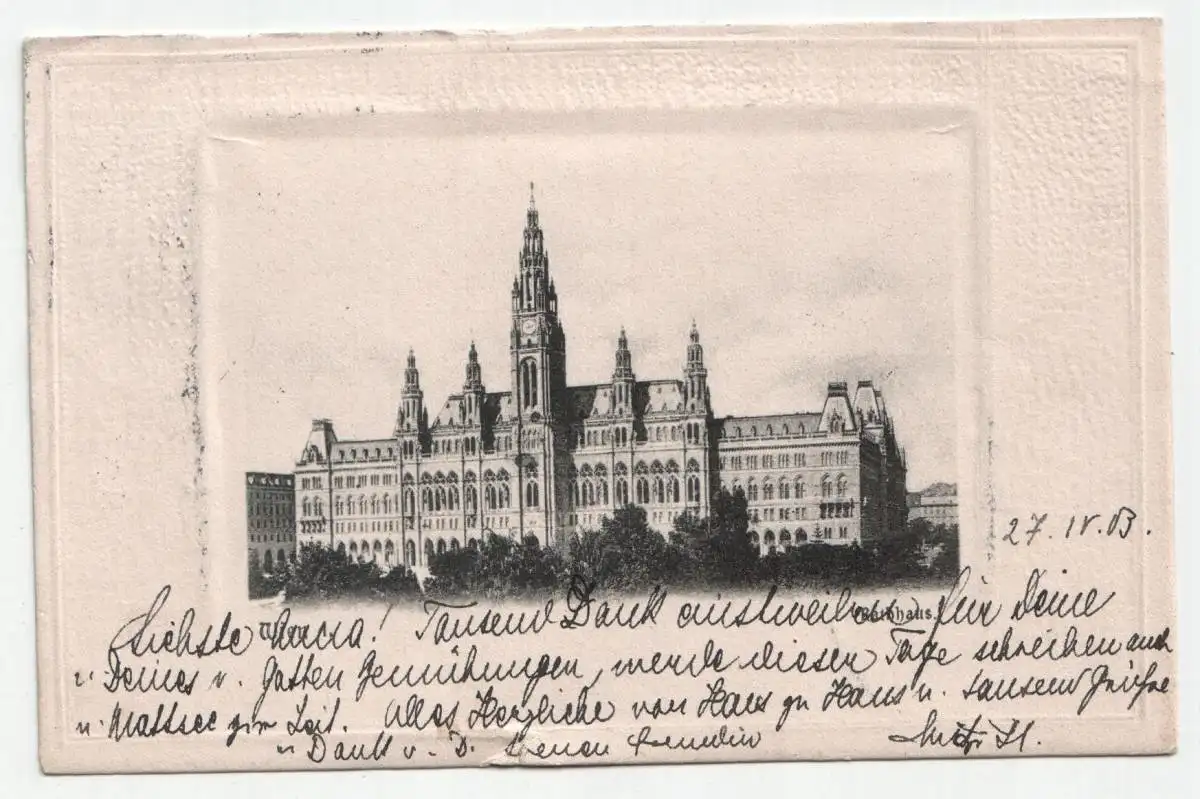 27. IV. 03.
Rathaus.
Tausend Dank einstweilen für Deine
u. Deines v. Gatten Bemühungen, werde dieser Tage schreiben auch
u. Mattsee zur Zeit. Alles Herzliche von Haus zu Haus u. tausend Grüße
u Dank v. D.